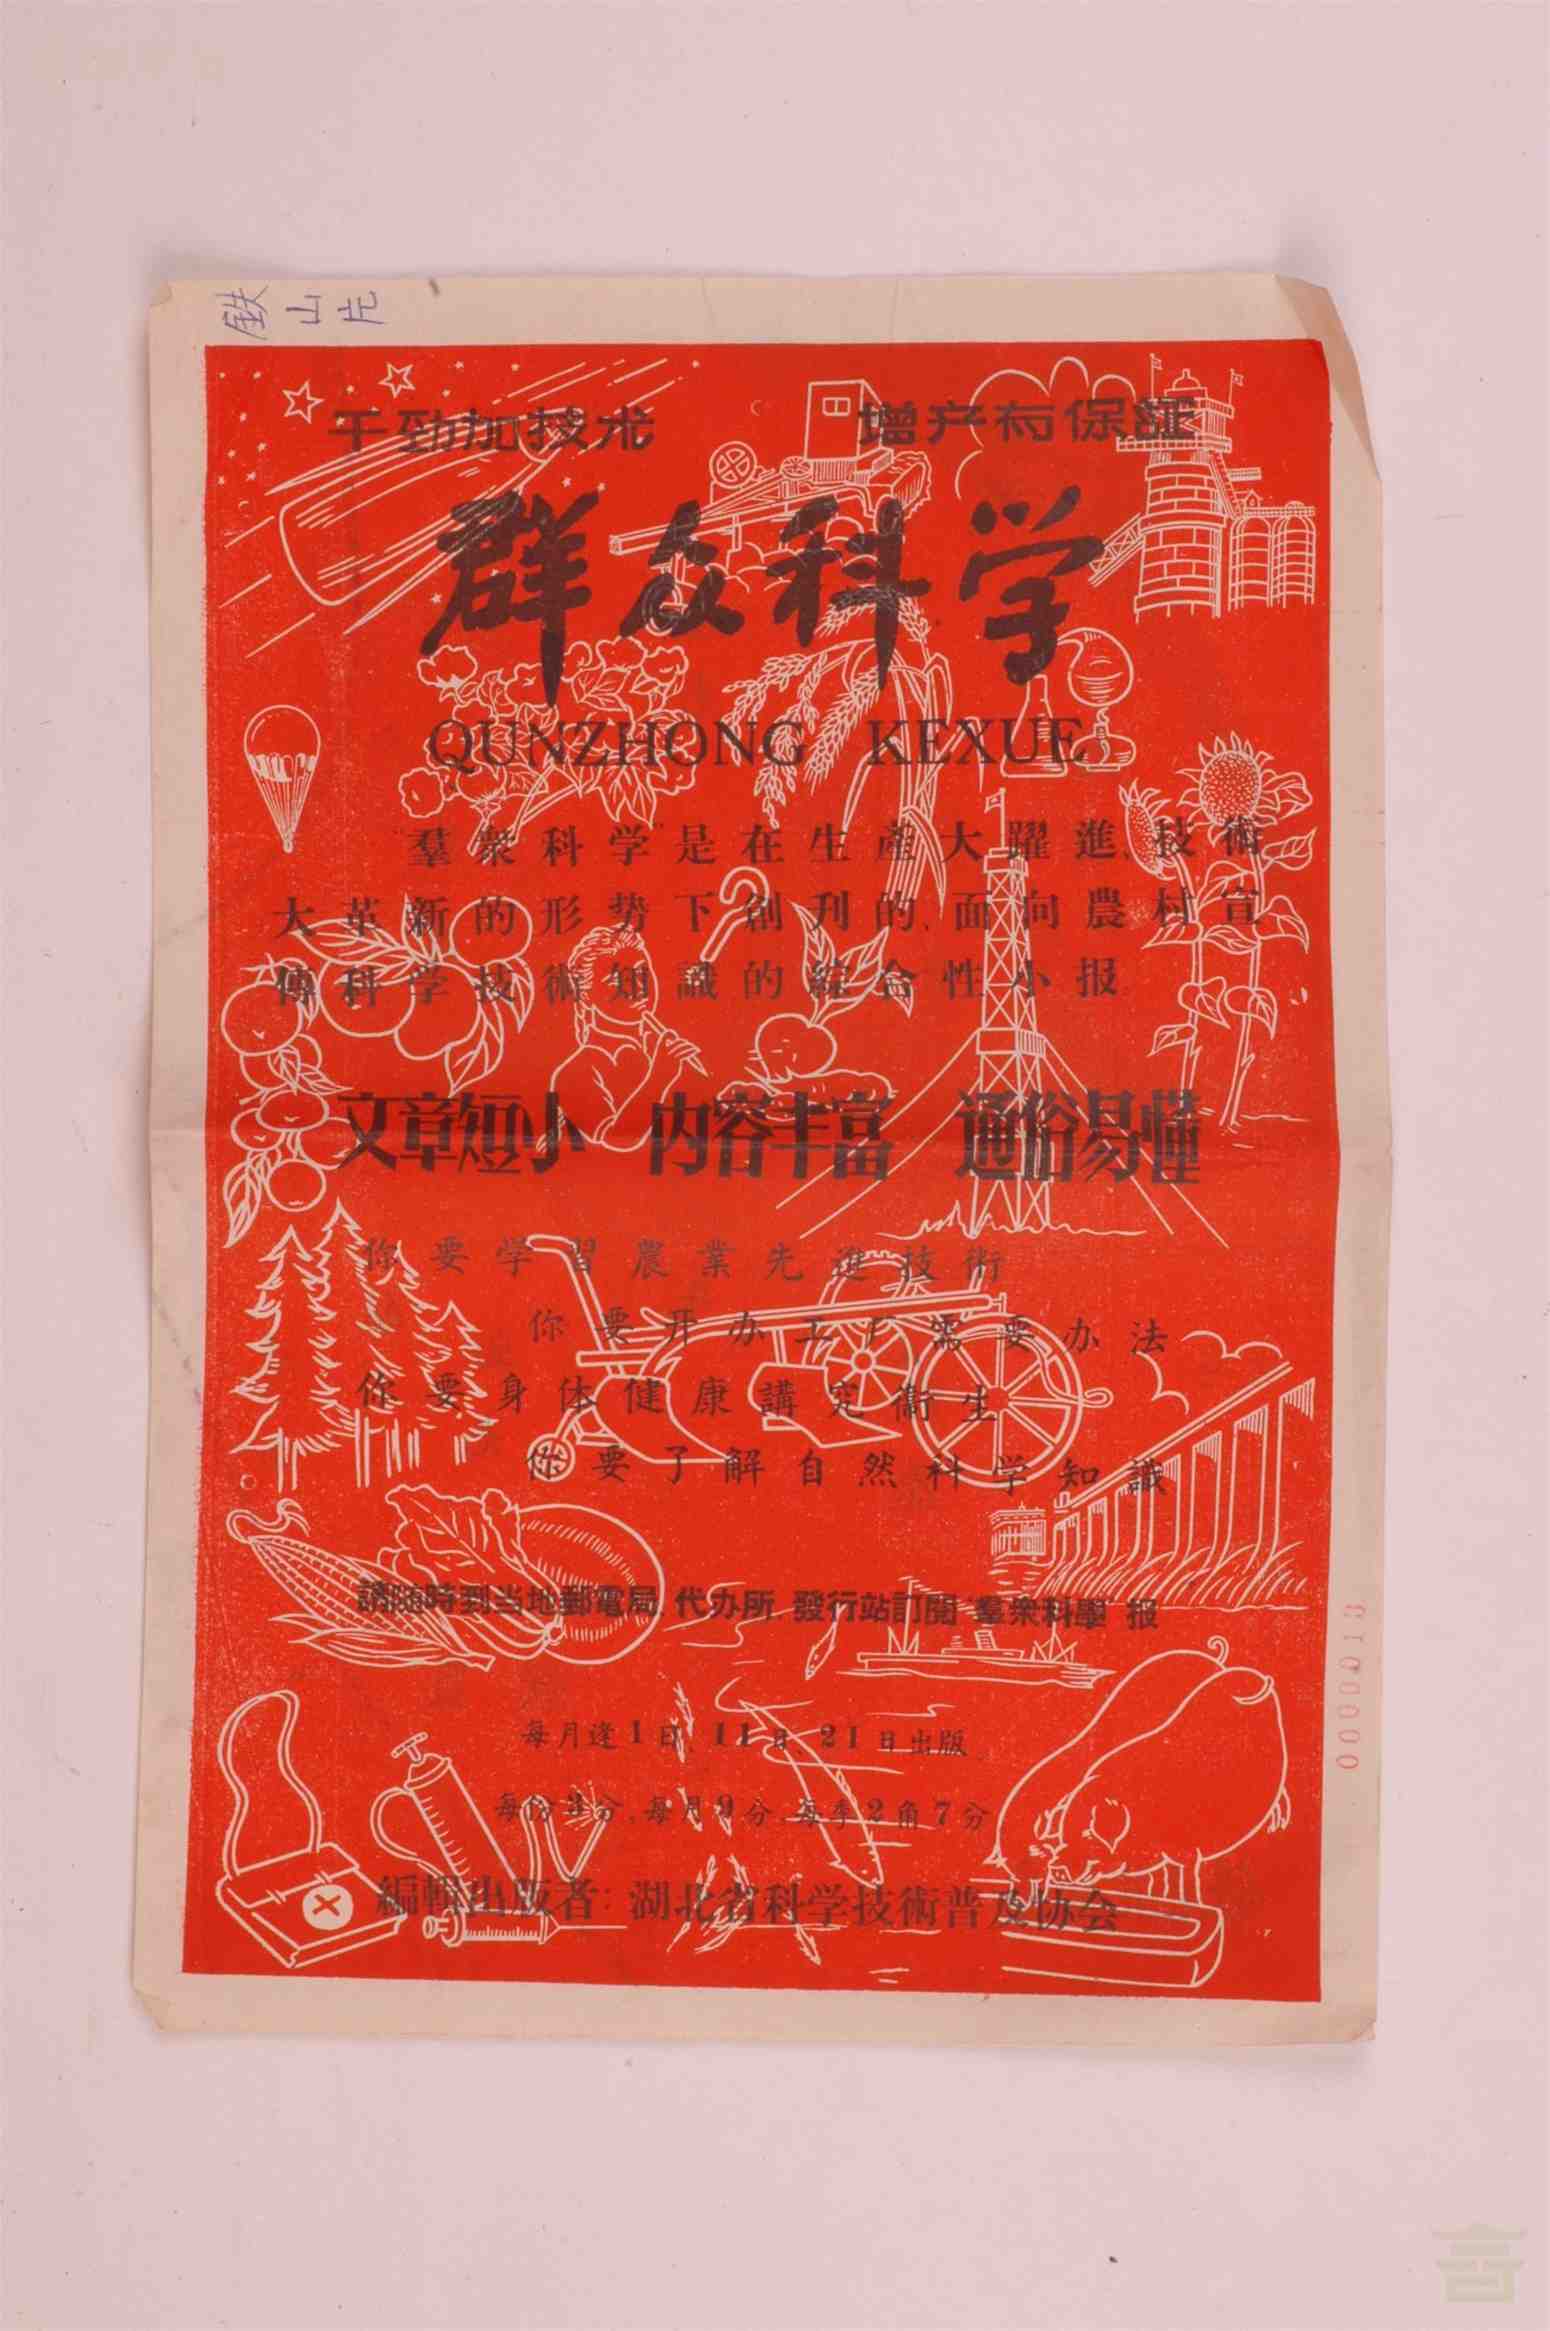 鉄山片
干勁加技术 增产有保証
群众科学
QUNZHONG KEXUE
"羣衆科学"是在生產大躍進、技術
大革新的形势下創刊的、面向農村宣
傳科学技術知識的綜合性小报
文章短小 内容丰富 通俗易懂
你要学習農業先進技術
你要开办工厂需要办法
你要身体健康講究衞生
你要了解自然科学知識
請随時到当地郵電局、代办所、發行站訂閱"羣衆科學"报
每月逢1日、11日、21日出版
每份3分,每月9分,每季2角7分
編輯出版者:湖北省科学技術普及协会